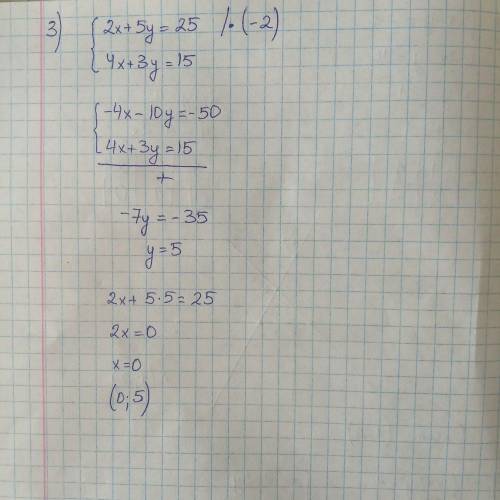 3) 2x+5y=25 /·(-2)
4x+3y=15
-4x-10y=-50
4x+3y=15
+
-7y=-35
y=5
2x+5·5=25
2x=0
x=0
(0;5)